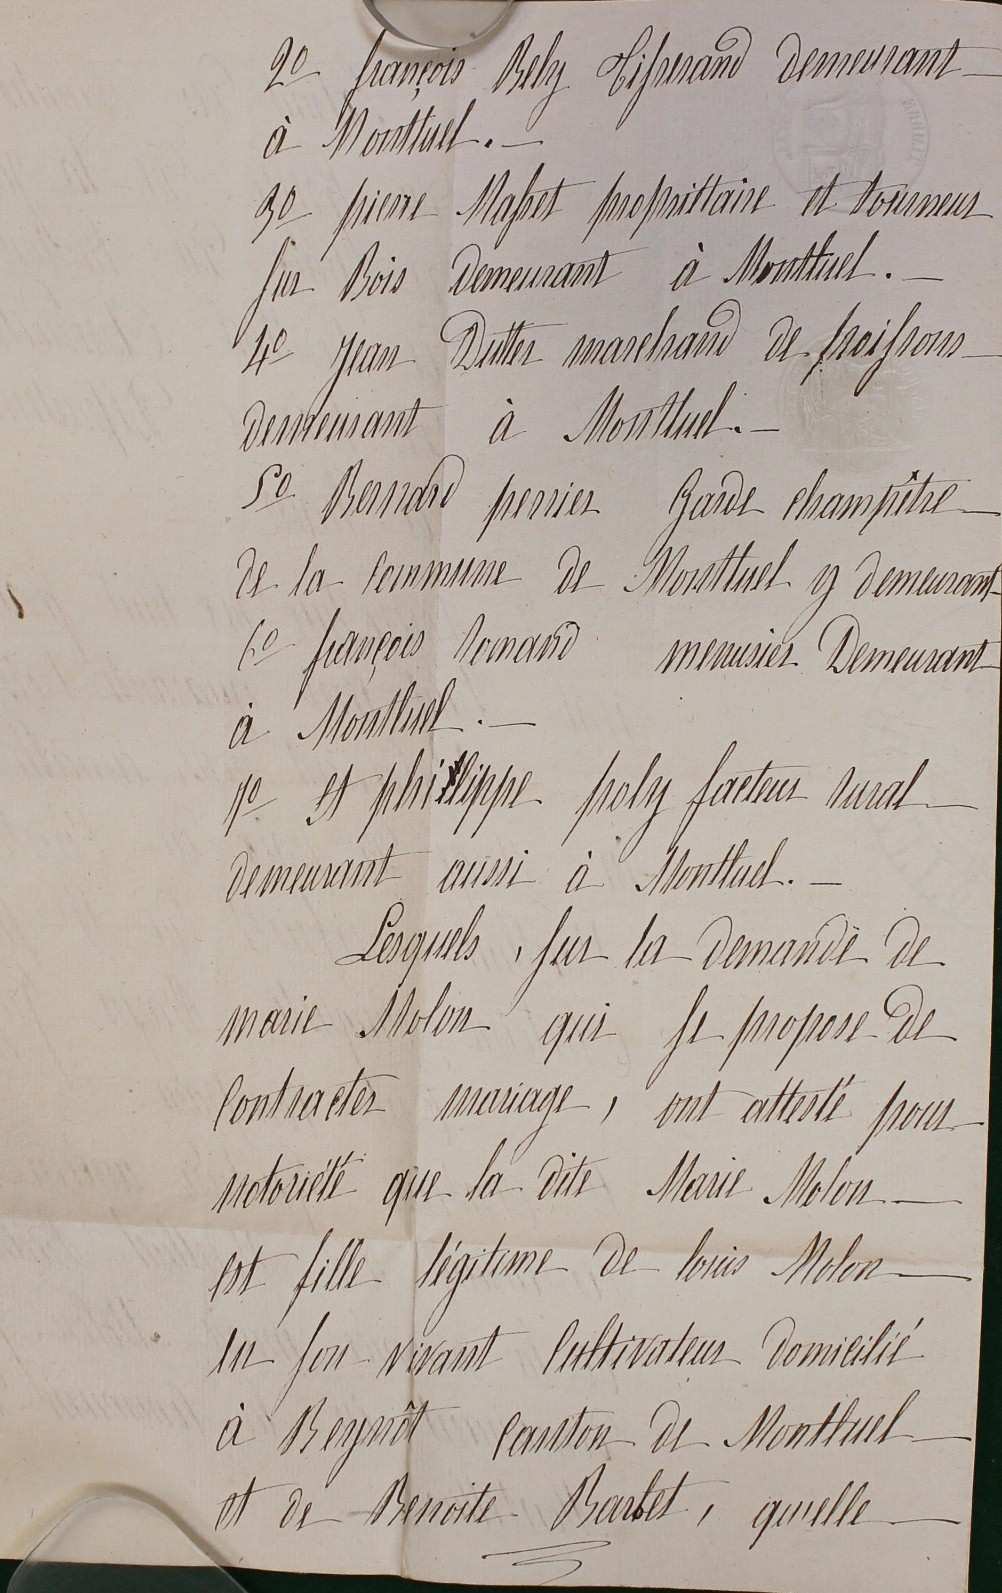 2o françois Bely Tisserand demeurant
à Montluel. —
3o pierre Masset propriétaire et tourneur
sur Bois demeurant à Montluel. —
4o jean Dutter marchand de poissons
demeurant à Montluel. —
5o Bernard perrier Garde champêtre
de la Commune de Montluel y demeurant
6o françois tomand menuisier Demeurant
à Montluel. —
7o Et philippe poly facteur rural
demeurant aussi à Montluel. —
Lesquels, sur la demande de
marie Molon qui se propose de
Contracter mariage, ont attesté pour
notoriété que la dite Marie Molon
est fille légitime de louis Molon
en son vivant Cultivateur domicilié
à Beynôt Canton de Montluel
et de Benoite Barbet, qu'elle